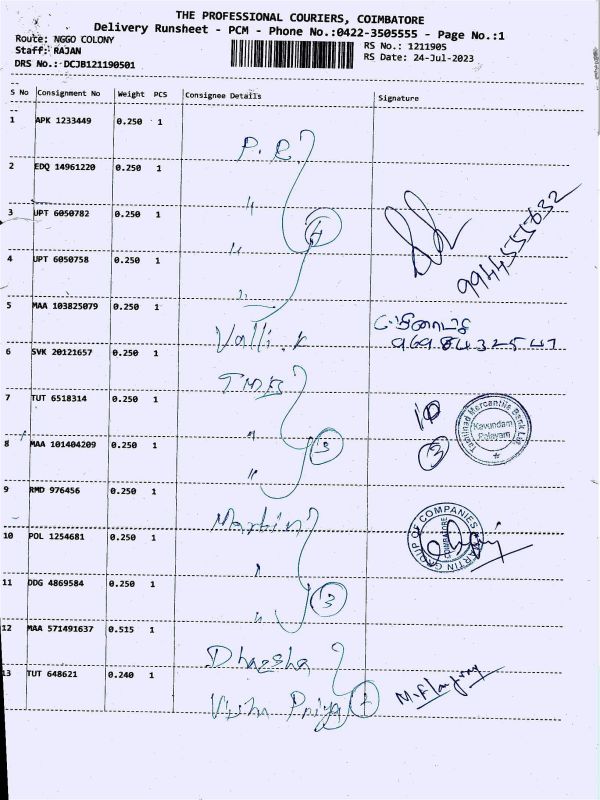 THE PROFESSIONAL COURIERS, COIMBATORE
Delivery Runsheet - PCM - Phone No.:0422-3505555 - Page No.:1
Route: NGGO COLONY
Staff: RAJAN
DRS No.: DCJB121190501
RS No.: 1211905
RS Date: 24-Jul-2023
S No Consignment No Weight PCS Consignee Details Signature
1 APK 1233449 0.250 1 P.R
2 EDQ 14961220 0.250 1 "
3 UPT 6050782 0.250 1 " 4
4 UPT 6050758 0.250 1 "
9944555632
5 MAA 103825079 0.250 1 Valli.K
9698432547
6 SVK 20121657 0.250 1 TMB
7 TUT 6518314 0.250 1 " 3
8 MAA 101404209 0.250 1 "
10
3
Tamilnad Mercantile Bank Ltd
Kavundam
Palayam
9 RMD 976456 0.250 1 Martin
10 POL 1254681 0.250 1 "
11 DDG 4869584 0.250 1 " 3
MARTIN GROUP OF COMPANIES
COIMBATORE
12 MAA 571491637 0.515 1
13 TUT 648621 0.240 1 Priya